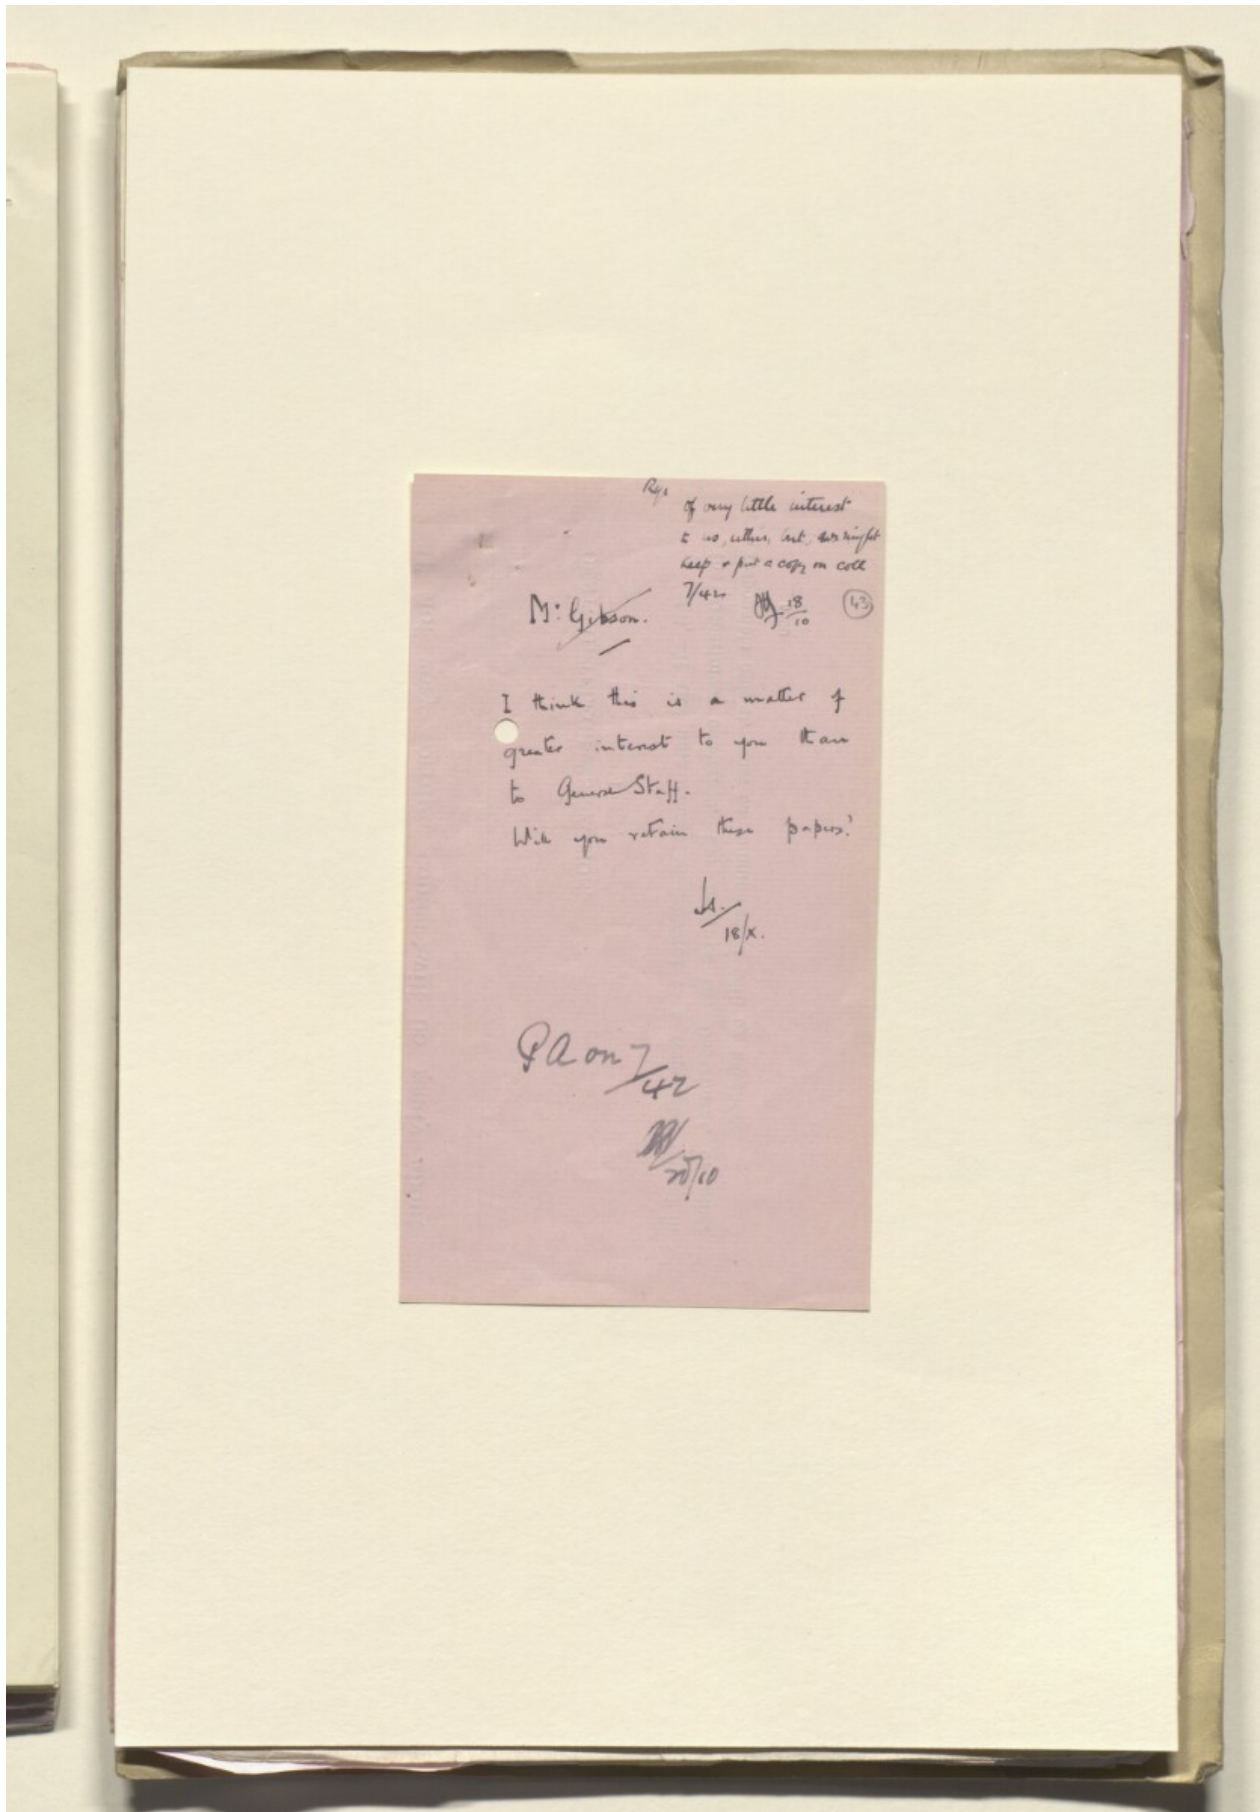 Rys
of very little interest
to us, either, but, we might
keep & put a copy on coll
7/42 18/10
43
Mr Gibson.
I think this is a matter of
greater interest to you than
to General Staff.
Will you retain these papers?
18/X.
PA on 7/42
20/10